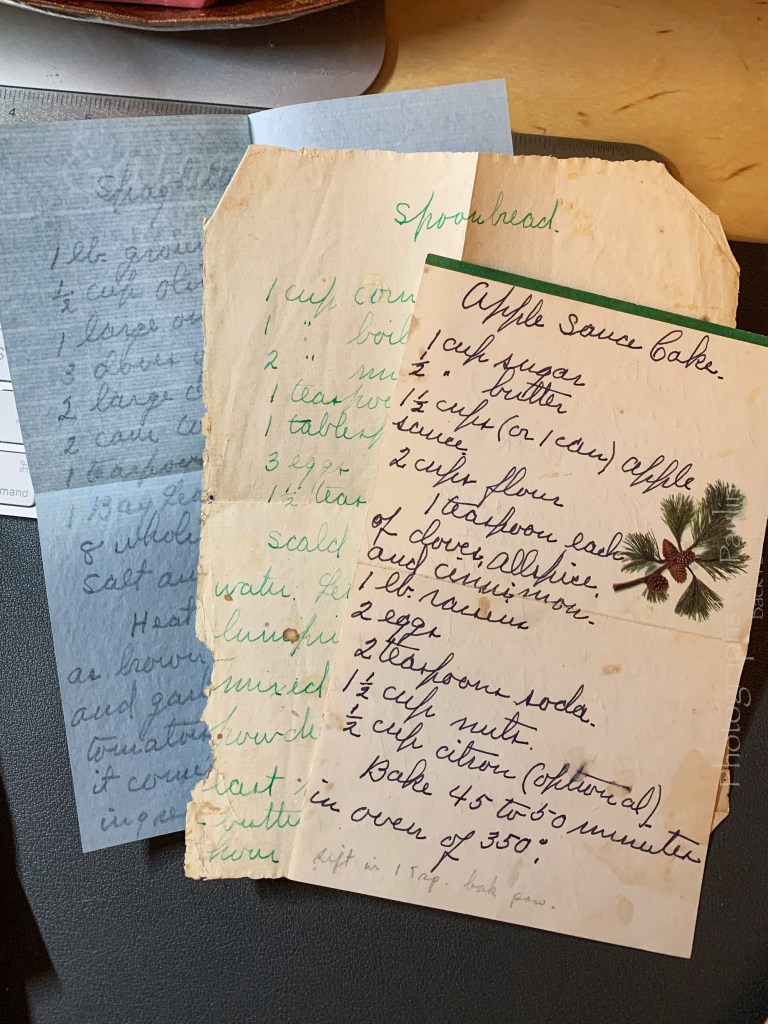 1 lb. groun
1/2 cup oli
1 large
3 cloves
2 large
2 cans to
1 teaspoon
1 Bay Lea
8 whole
Salt an
Heat
as brown
and gar
tomatoes
it come
ingre
Spoonbread.
1 cup corn
1 " boil
2 " mi
1 teaspoo
1 tablesp
3 eggs
1 1/2 teas
scald
water. Let
lumpi
mixed
powde
last
butte
hour
Apple Sauce Cake.
1 cup sugar
1/2 " butter
1 1/2 cups (or 1 can) apple
sauce
2 cups flour
1 teaspoon each
of cloves, allspice,
and cinnimon.
1 lb. raisins
2 eggs
2 teaspoons soda.
1 1/2 cup nuts.
1/2 cup citron (optional)
Bake 45 to 50 minutes
in oven of 350°.
sift in 1 Tsp. bak pow.
mand
4
5